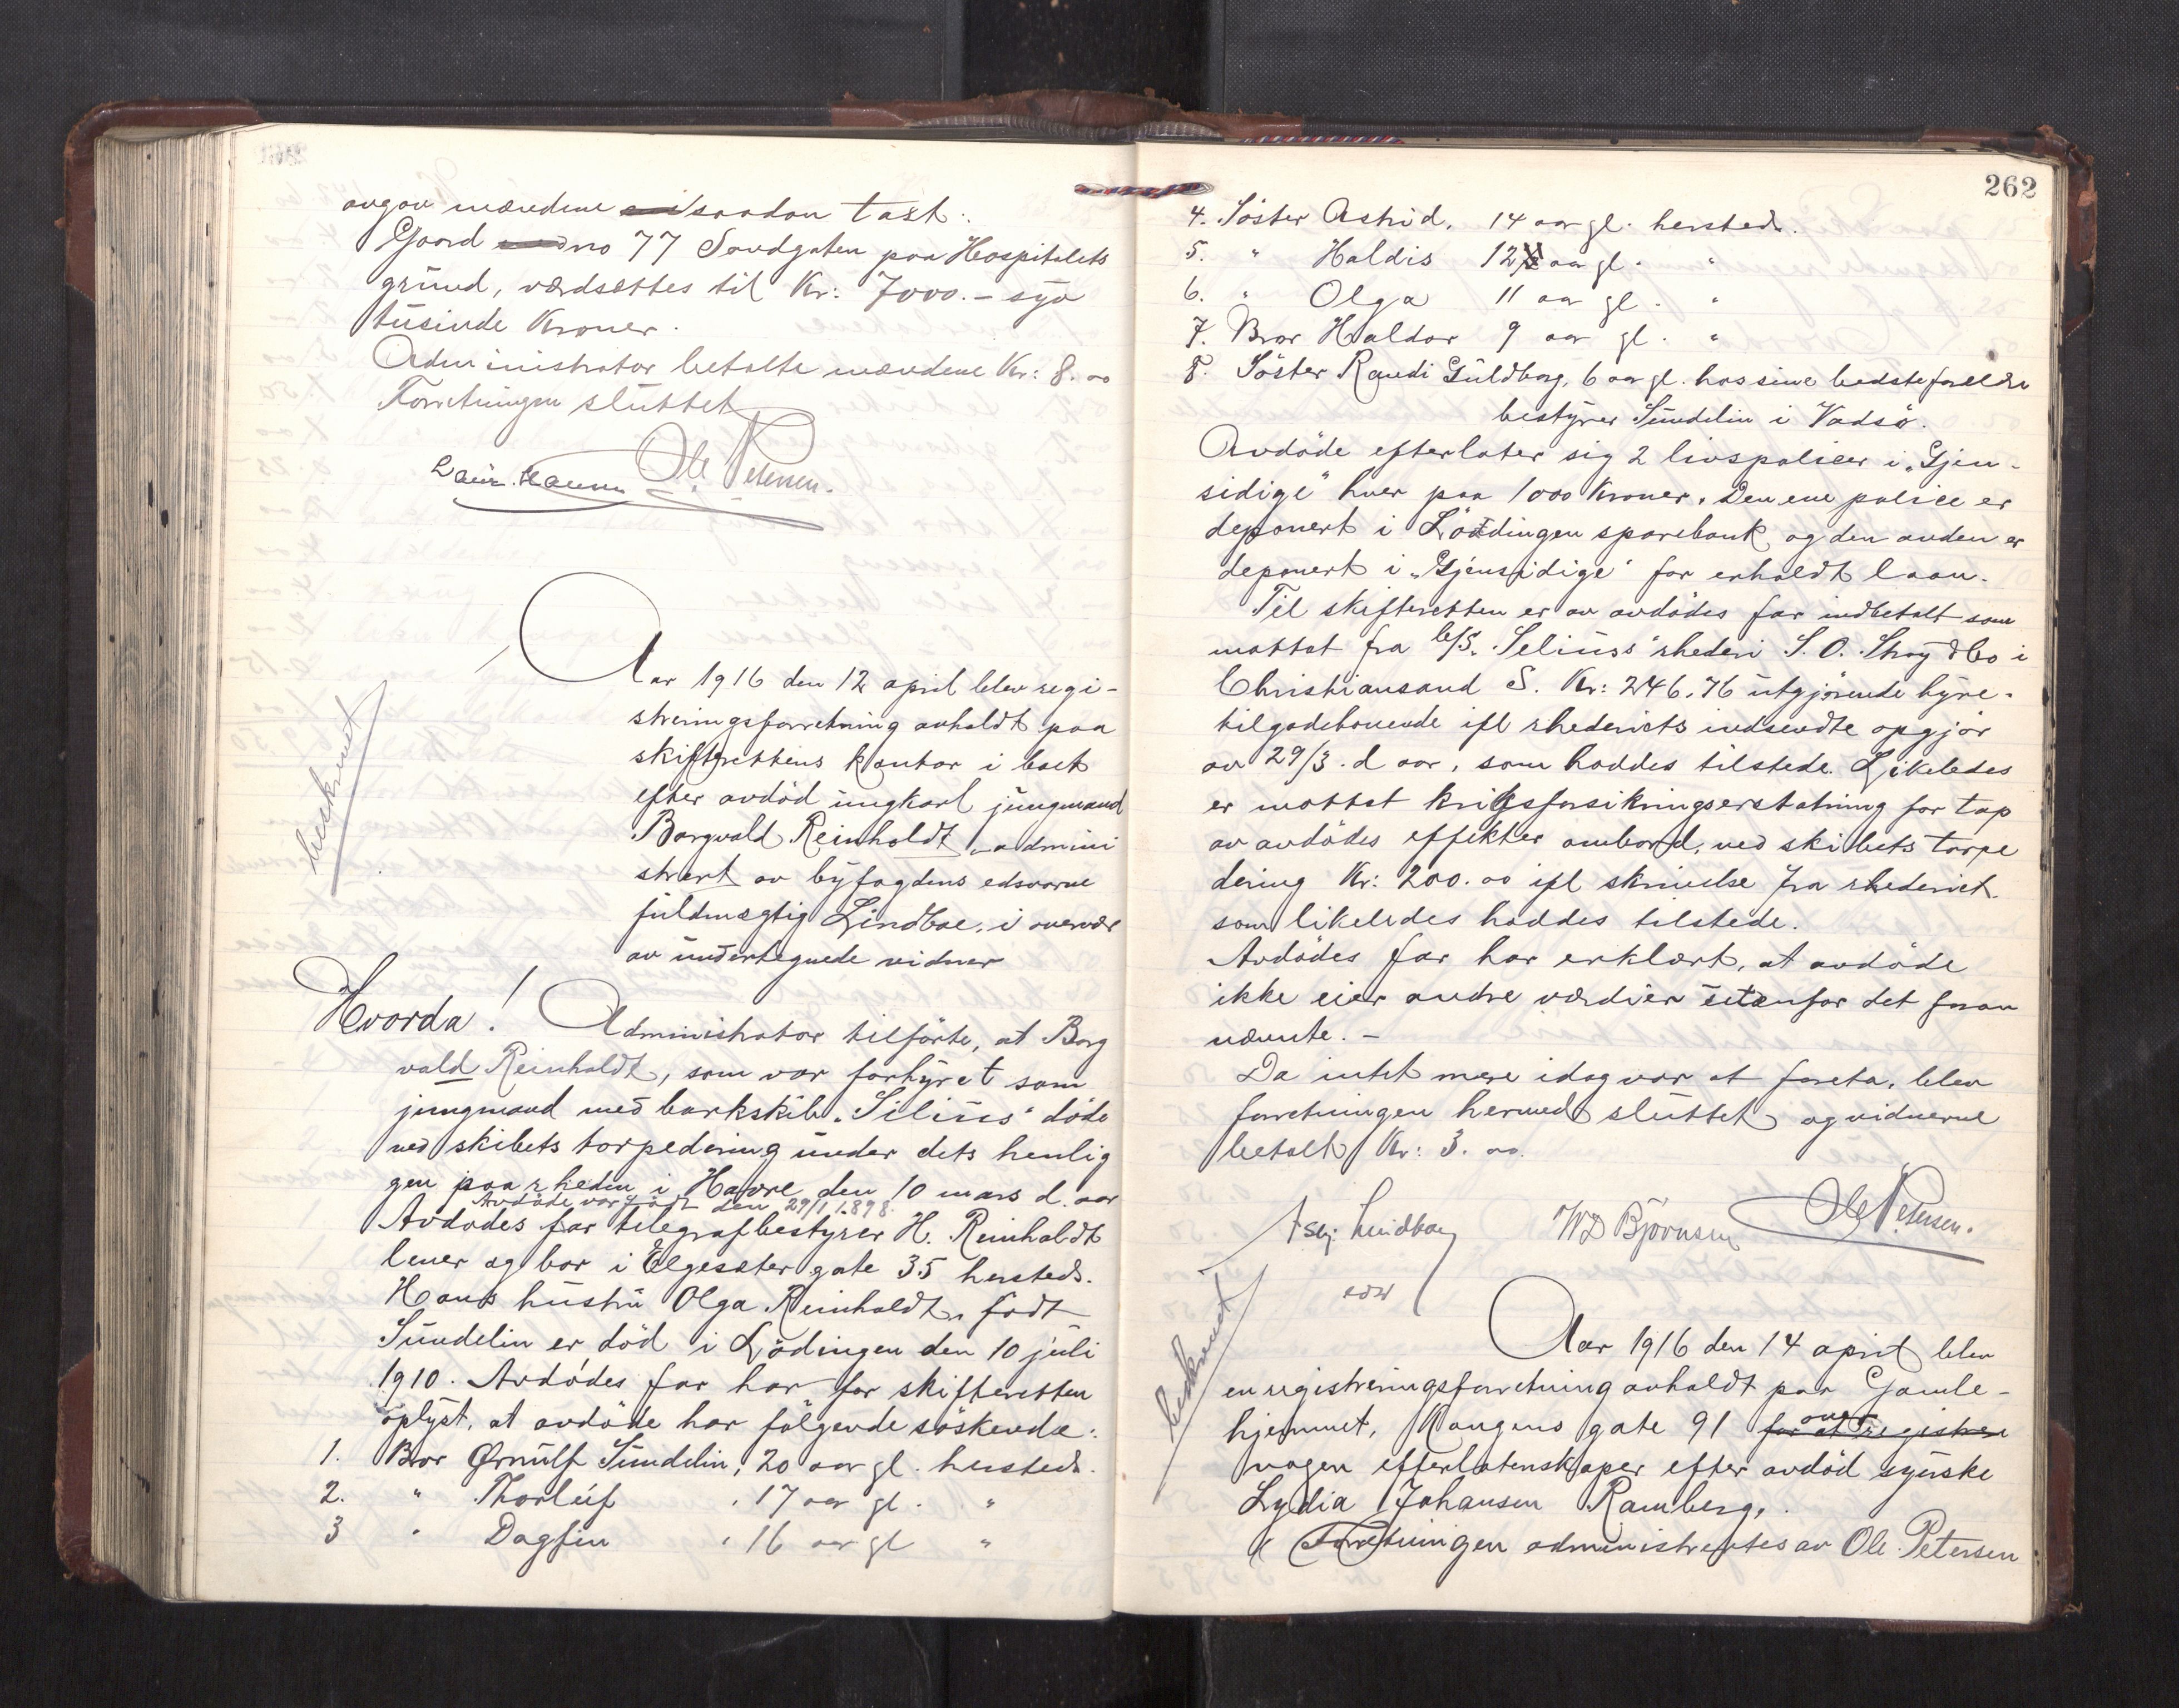 avgav mændene saadan takst:
Gaard no 77 Sandgaten paa Hospitalets
grund, værdsættes til Kr: 7000.- syv
tusinde Kroner.
Administrator betalte mændene Kr: 8.00
Forretningen sluttet
Ole Petersen.
beskrevet
Aar 1916 den 12 april blev regi-
streringsforretning avholdt paa
skifterettens kontor i boet
efter avdöd ungkarl jungmand
Borgvald Reinholdt, admini
strert av byfogdens edsvorne
fuldmægtig Lindboe, i overvær
av undertegnede vidner
Hvorda! Administrator tilförte, at Borg
vald Reinholdt, som var forhyret som
jungmand med barkskib „Silius" döde
ved skibets torpedering under dets henlig
gen paa rheden i Havre den 10 mars d. aar
Avdöde var födt den 29/1 1898.
Avdödes far telegrafbestyrer H. Reinholdt
lever og bor i Elgesæter gate 35 hersteds.
Hans hustru Olga Reinholdt, födt
Sundelin er död i Lödingen den 10 juli
1910. Avdödes far har for skifteretten
oplyst, at avdöde har fölgende söskende:
1. Bror Ørnulf Sundelin, 20 aar gl. hersteds.
2. " Thorleif , 17 aar gl. "
3 " Dagfin , 16 aar gl "
262
4. Söster Astrid, 14 aar gl. hersteds.
5. " Haldis 12 aar gl. "
6. " Olga 11 aar gl. "
7. Bror Haldor 9 aar gl. "
8. Söster Randi Guldborg, 6 aar gl. hos sine bedsteforeldre
bestyrer Sundelin i Vadsö.
Avdöde efterlater sig 2 livspolicer i „Gjen-
sidige" hver paa 1000 Kroner. Den ene police er
deponert i Lödingen sparebank og den anden er
deponert i „Gjensidige" for erholdt laan.
Til skifteretten er av avdödes far indbetalt som
mottat fra b/s. „Selius" rhederi S. O. Stray & Co i
Christiansand S. Kr: 246,76 utgjörende hyre-
tilgodehavende ifl rhederiets indsendte opgjör
av 29/3. d aar, som haddes tilstede. Likeledes
er mottat krigsforsikringserstatning for tap
av avdödes effekter ombord, ved skibets torpe
dering Kr: 200.00 ifl skrivelse fra rhederiet
som likeledes haddes tilstede.
Avdödes far har erklært, at avdöde
ikke eier andre værdier utenfor det foran
nævnte. -
Da intet mere idag var at foreta, blev
forretningen hermed sluttet og vidnerne
betalt Kr: 3.00.
Lindboe WD Björnsen Ole Petersen.
edsv
beskrevet
Aar 1916 den 14 april blev
en registreringsforretning avholdt paa Gamle-
hjemmet, Kongens gate 91 for at registrere over
nogen efterlatenskaper efter avdöd syerske
Lydia Johansen Ramberg.
Forretningen administrertes av Ole Petersen